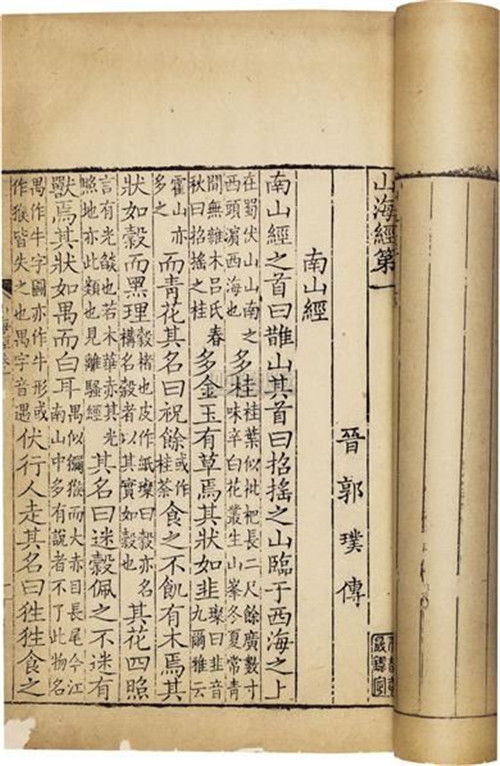 山海經第一
晉郭璞傳
南山經
南山經之首曰䧿山其首曰招搖之山臨于西海之上
在蜀伏山山南之西頭濵西海也多桂桂葉似枇杷長二尺餘廣數寸味辛白花叢生山峯冬夏常青
間無雜木呂氏春秋曰招搖之桂多金玉有草焉其狀如韭璨曰韭音九爾雅云
霍山亦多之而青花其名曰祝餘或作桂荼食之不飢有木焉其
狀如穀而黑理穀楮也皮作紙璨曰穀亦名構名穀者以其實如穀也其花四照
言有光燄也若木華赤其光照地亦此類也見離騷經其名曰迷穀佩之不迷有
獸焉其狀如禺而白耳禺似獼猴而大赤目長尾今江南山中多有說者不了此物名
禺作牛字圖亦作牛形或作猴皆失之也禺字音遇伏行人走其名曰狌狌食之